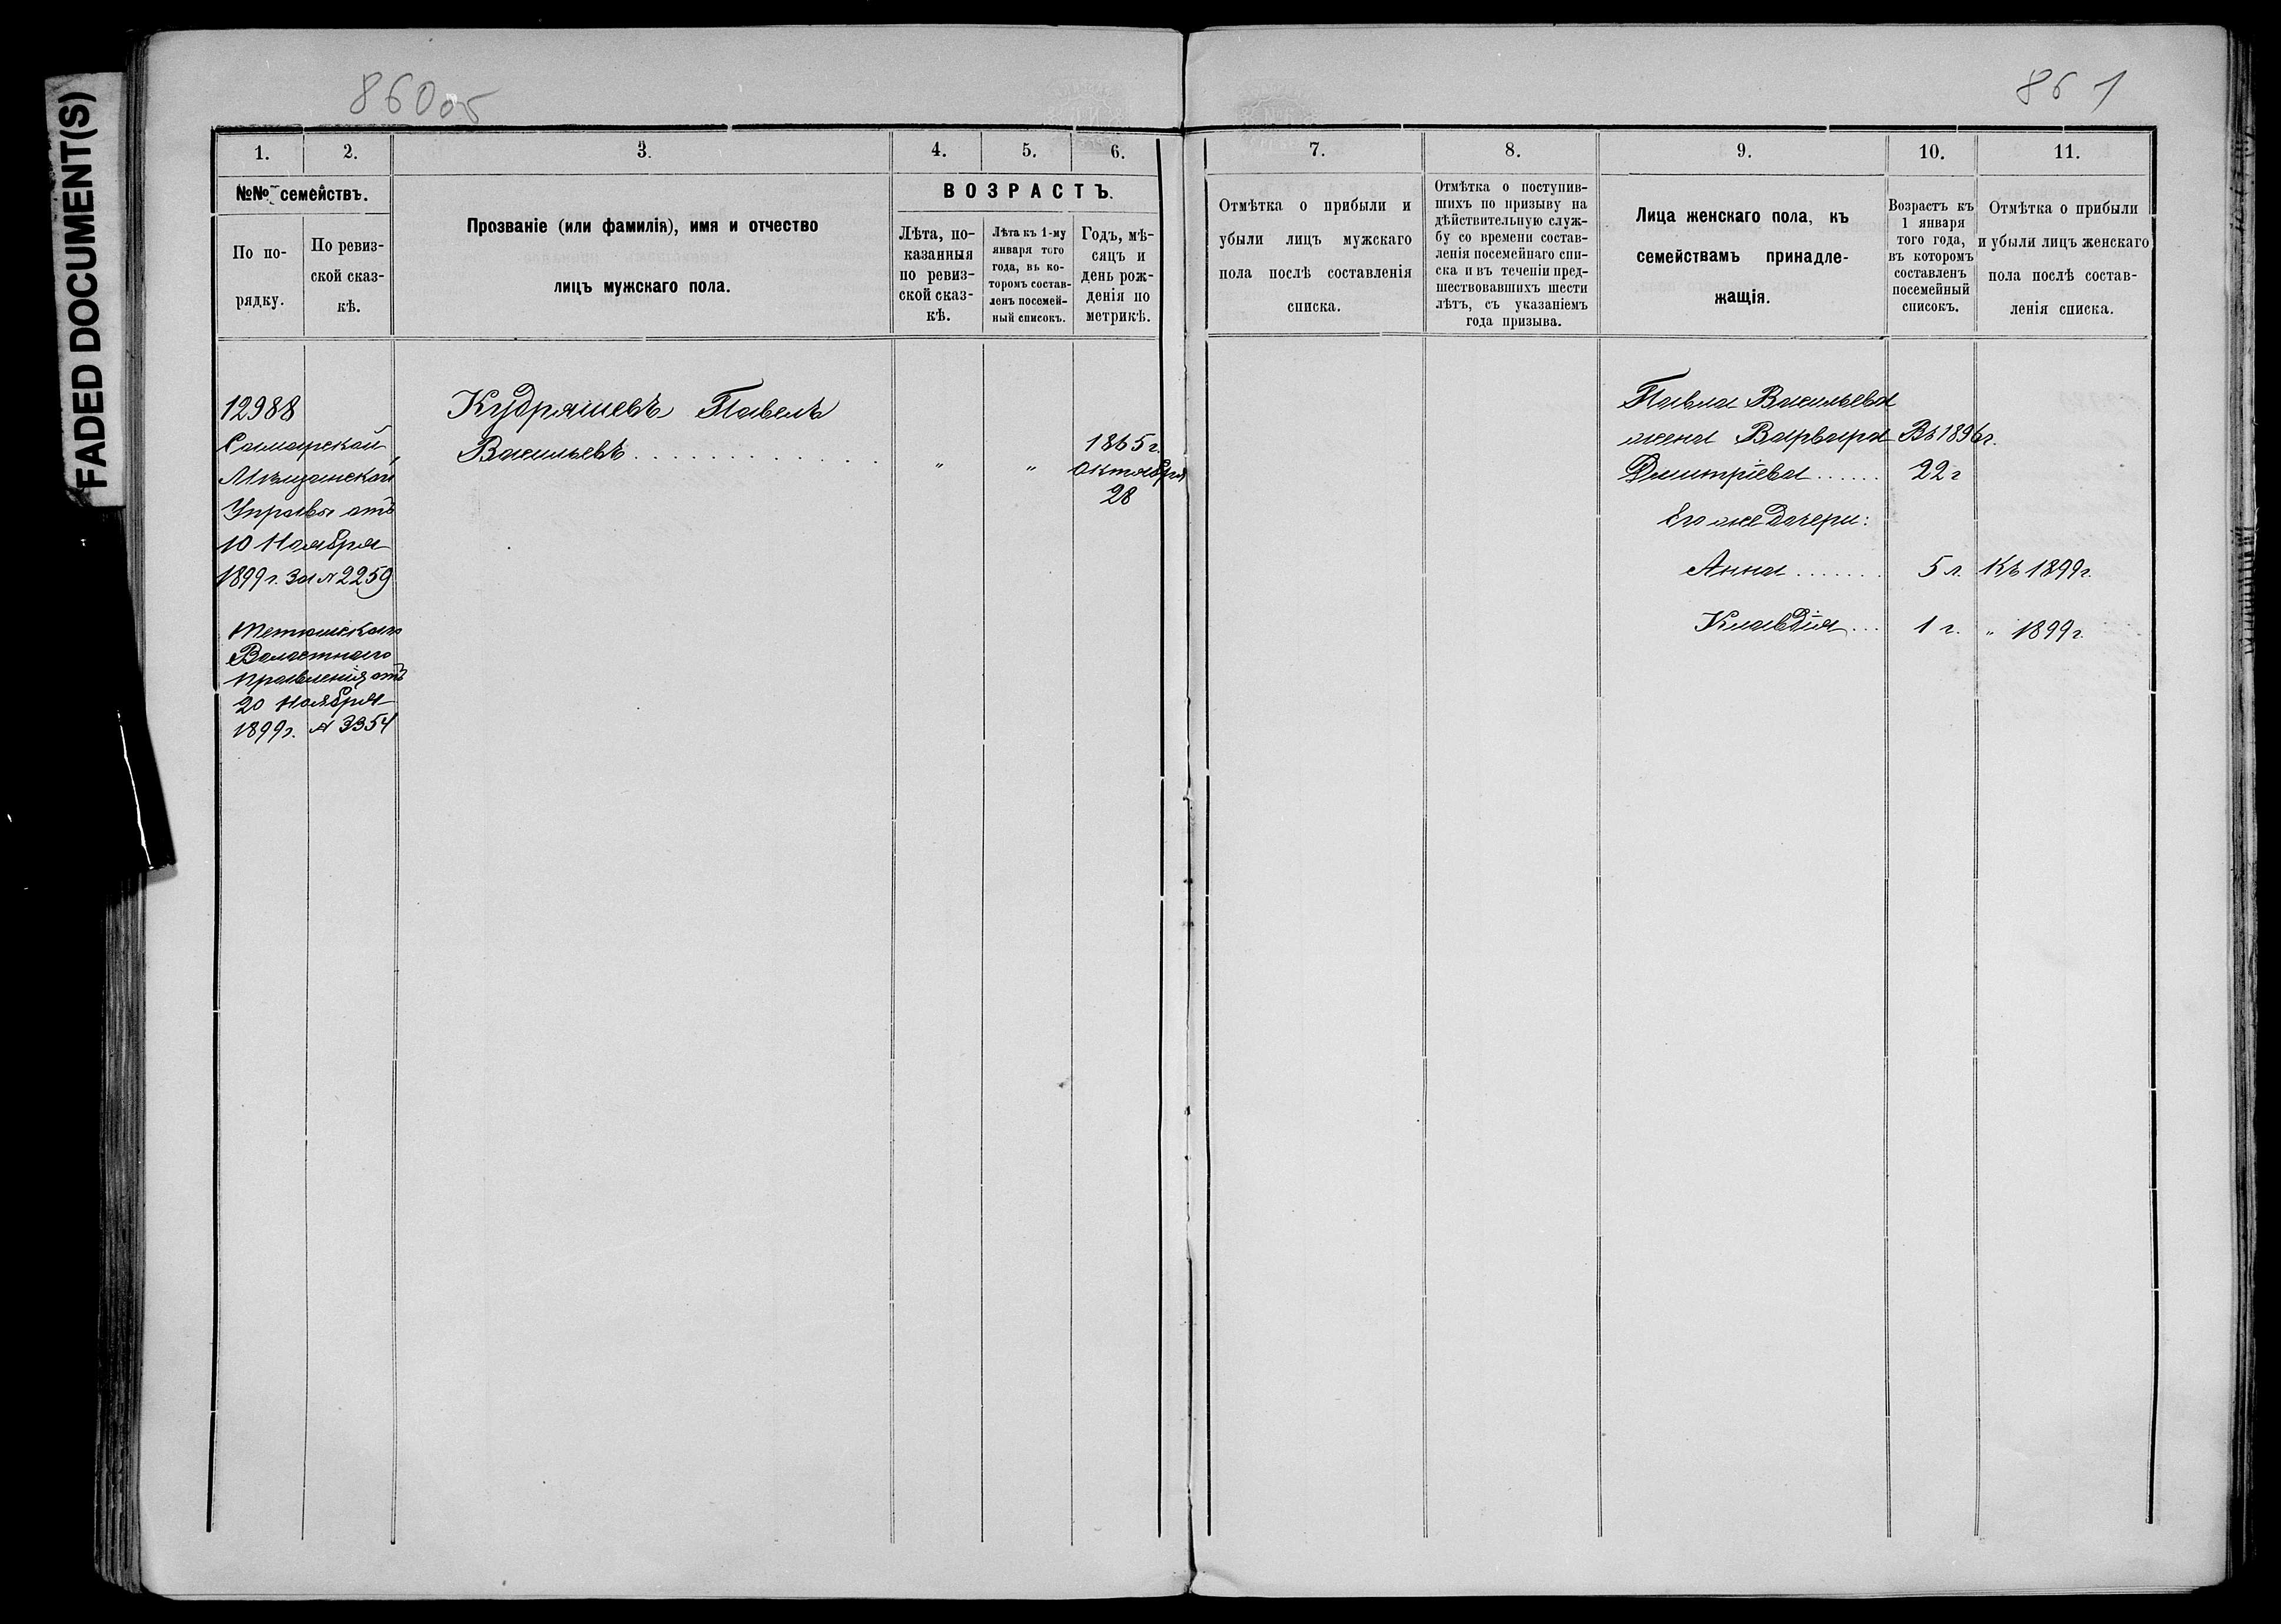 FADED DOCUMENT(S)
860об
1.
2.
3.
4.
5.
6.
№№ семействъ.
По по-
рядку.
По ревиз-
ской сказ-
кѣ.
Прозваніе (или фамилія), имя и отчество
лицъ мужскаго пола.
ВОЗРАСТЪ.
Лѣта, по-
казанныя
по ревиз-
ской сказ-
кѣ.
Лѣта къ 1-му
января того
года, въ ко-
торомъ состав-
ленъ посемей-
ный списокъ.
Годъ, мѣ-
сяцъ и
день рож-
денія по
метрикѣ.
12988
Самарской
Мѣщанской
Управы отъ
10 Ноября
1899 г. за № 2259
Тетюшскаго
Волостнаго
Правленія отъ
20 Ноября
1899 г. № 3354
Кудряшевъ Павелъ
Васильевъ . . . . . . . . . . . . . " "
1865 г.
Октября
28
861
7.
8.
9.
10.
11.
Отмѣтка о прибыли и
убыли лицъ мужскаго
пола послѣ составленія
списка.
Отмѣтка о поступив-
шихъ по призыву на
дѣйствительную служ-
бу со времени состав-
ленія посемейнаго спи-
ска и въ теченіи пред-
шествовавшихъ шести
лѣтъ, съ указаніемъ
года призыва.
Лица женскаго пола, къ
семействамъ принадле-
жащія.
Возрастъ къ
1 января
того года,
въ которомъ
составленъ
посемейный
списокъ.
Отмѣтка о прибыли
и убыли лицъ женскаго
пола послѣ состав-
ленія списка.
Павла Васильева
жена Варвара Въ 1896 г.
Димитріева . . . . . . 22 г
Его же дочери:
Анна . . . . . . . 5 л. Къ 1899 г.
Клавдія . . . 1 г. " 1899 г.